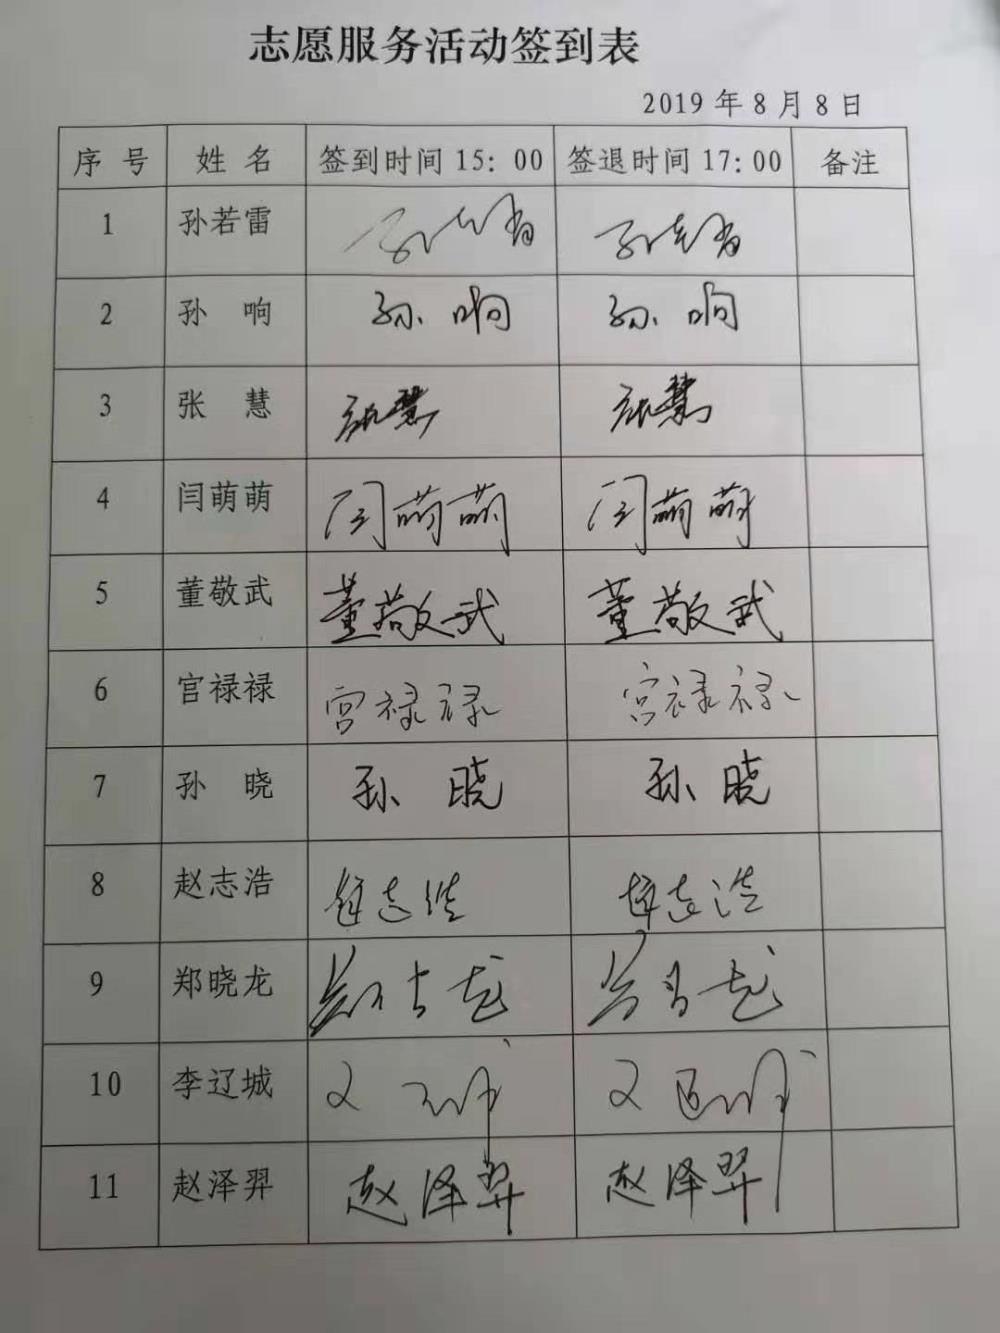 志愿服务活动签到表
2019年8月8日
序号 姓名 签到时间15:00 签退时间17:00 备注
1 孙若雷
2 孙 响 孙响 孙响
3 张 慧 张慧 张慧
4 闫萌萌 闫萌萌 闫萌萌
5 董敬武 董敬武 董敬武
6 宫禄禄 宫禄禄 宫禄禄
7 孙 晓 孙晓 孙晓
8 赵志浩 赵志浩 赵志浩
9 郑晓龙
10 李辽城
11 赵泽羿 赵泽羿 赵泽羿